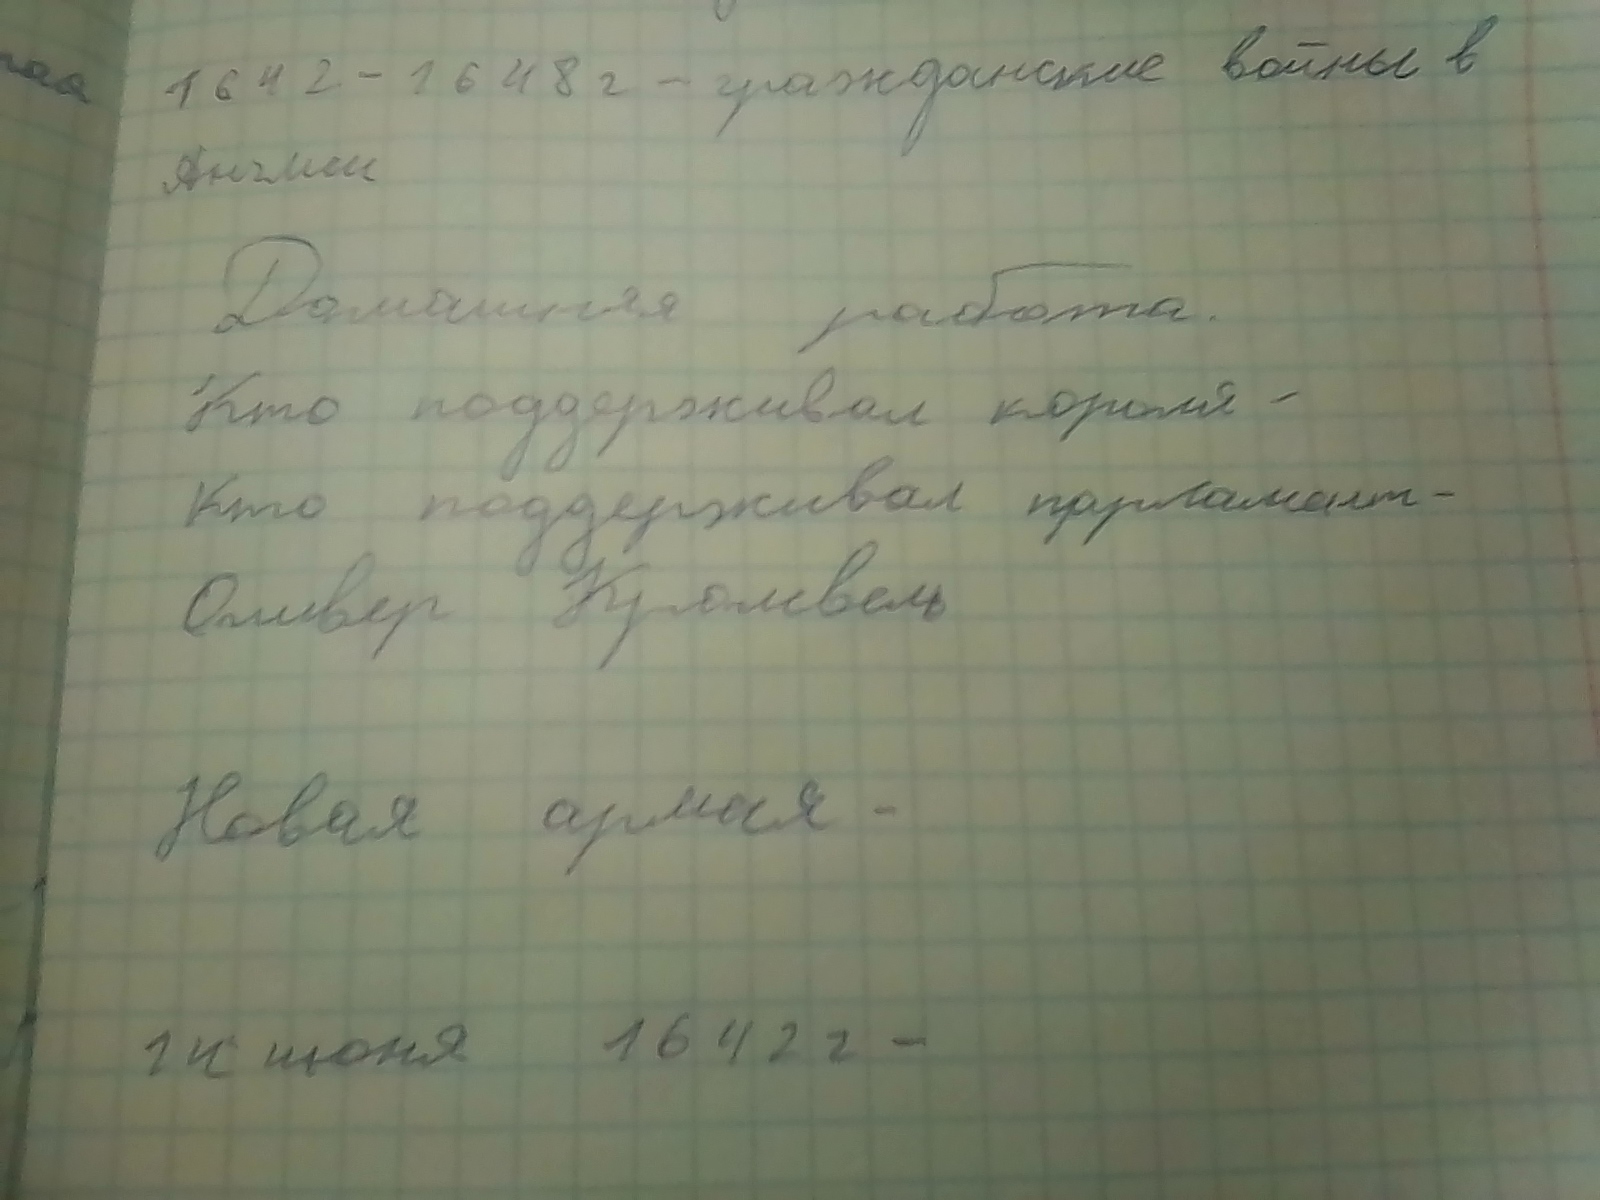 1642-1648г - гражданские войны в
Англии
Домашняя работа.
Кто поддерживал короля -
Кто поддерживал парламент-
Оливер Кромвель
Новая армия -
14 июня 1642г -